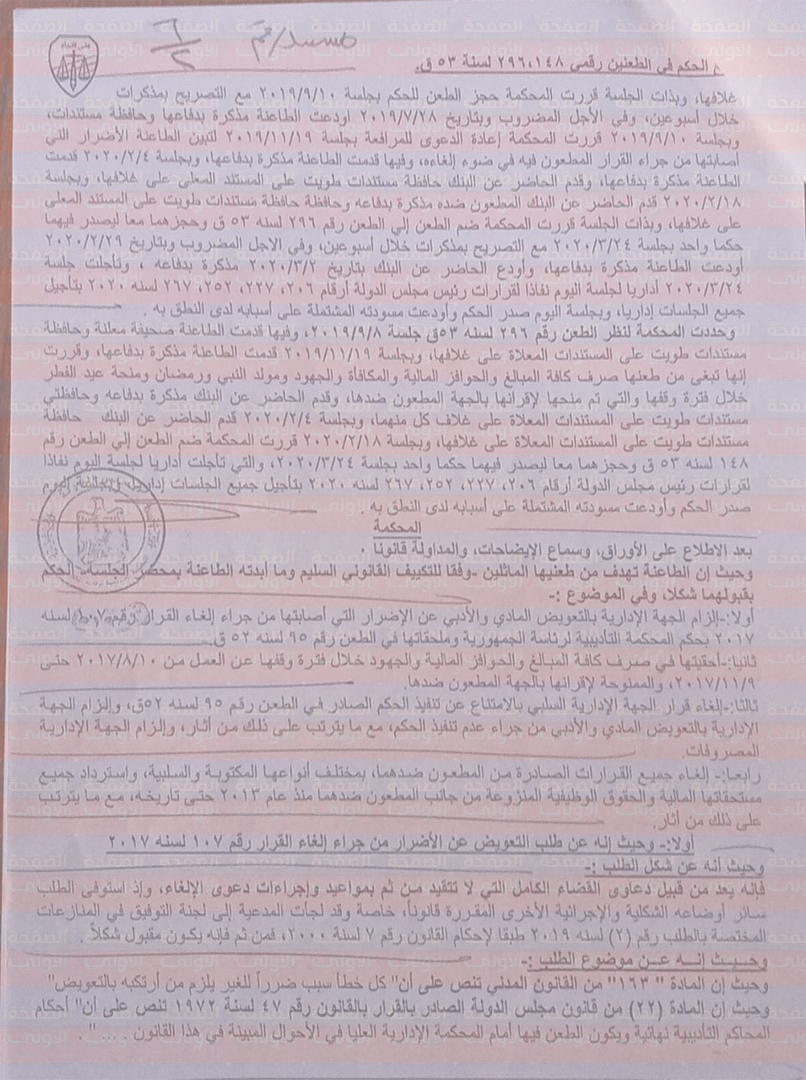 مستند/ رقم
٦/٢
الحكم في الطعنين رقمي ٢٩٦،١٤٨ لسنة ٥٣ ق.
غلافها، وبذات الجلسة قررت المحكمة حجز الطعن للحكم بجلسة ٢٠١٩/٩/١٠ مع التصريح بمذكرات
خلال أسبوعين، وفي الأجل المضروب وبتاريخ ٢٠١٩/٧/٢٨ أودعت الطاعنة مذكرة بدفاعها وحافظة مستندات،
وبجلسة ٢٠١٩/٩/١٠ قررت المحكمة إعادة الدعوى للمرافعة بجلسة ٢٠١٩/١١/١٩ لتبين الطاعنة الأضرار التي
أصابتها من جراء القرار المطعون فيه في ضوء إلغاءه، وفيها قدمت الطاعنة مذكرة بدفاعها، وبجلسة ٢٠٢٠/٢/٤ قدمت
الطاعنة مذكرة بدفاعها، وقدم الحاضر عن البنك حافظة مستندات طويت على المستند المعلى على غلافها، وبجلسة
٢٠٢٠/٢/١٨ قدم الحاضر عن البنك المطعون ضده مذكرة بدفاعه وحافظة حافظة مستندات طويت على المستند المعلى
على غلافها، وبذات الجلسة قررت المحكمة ضم الطعن إلي الطعن رقم ٢٩٦ لسنه ٥٣ ق وحجزهما معا ليصدر فيهما
حكما واحد بجلسة ٢٠٢٠/٣/٢٤ مع التصريح بمذكرات خلال أسبوعين، وفي الاجل المضروب وبتاريخ ٢٠٢٠/٢/٢٩
أودعت الطاعنة مذكرة بدفاعها، وأودع الحاضر عن البنك بتاريخ ٢٠٢٠/٣/٢ مذكرة بدفاعه ، وتأجلت جلسة
٢٠٢٠/٣/٢٤ أداريا لجلسة اليوم نفاذا لقرارات رئيس مجلس الدولة أرقام ٢٠٦، ٢٢٧، ٢٥٢، ٢٦٧ لسنه ٢٠٢٠ بتأجيل
جميع الجلسات إداريا، وبجلسة اليوم صدر الحكم وأودعت مسودته المشتملة على أسبابه لدى النطق به .
وحددت المحكمة لنظر الطعن رقم ٢٩٦ لسنه ٥٣ق جلسة ٢٠١٩/٩/٨، وفيها قدمت الطاعنة صحيفة معلنة وحافظة
مستندات طويت على المستندات المعلاة على غلافها، وبجلسة ٢٠١٩/١١/١٩ قدمت الطاعنة مذكرة بدفاعها، وقررت
إنها تبغى من طعنها صرف كافة المبالغ والحوافز المالية والمكافأة والجهود ومولد النبي ورمضان ومنحة عيد الفطر
خلال فترة وقفها والتي تم منحها لإقرانها بالجهة المطعون ضدها، وقدم الحاضر عن البنك مذكرة بدفاعه وحافظتي
مستندات طويت على المستندات المعلاة على غلاف كل منهما، وبجلسة ٢٠٢٠/٢/٤ قدم الحاضر عن البنك حافظة
مستندات طويت على المستندات المعلاة على غلافها، وبجلسة ٢٠٢٠/٢/١٨ قررت المحكمة ضم الطعن إلي الطعن رقم
١٤٨ لسنه ٥٣ ق وحجزهما معا ليصدر فيهما حكما واحد بجلسة ٢٠٢٠/٣/٢٤، والتي تأجلت أداريا لجلسة اليوم نفاذا
لقرارات رئيس مجلس الدولة أرقام ٢٠٦، ٢٢٧، ٢٥٢، ٢٦٧ لسنه ٢٠٢٠ بتأجيل جميع الجلسات إداريا، وبجلسة اليوم
صدر الحكم وأودعت مسودته المشتملة على أسبابه لدى النطق به .
المحكمة
بعد الاطلاع على الأوراق، وسماع الإيضاحات، والمداولة قانونا .
وحيث إن الطاعنة تهدف من طعنيها الماثلين -وفقا للتكييف القانوني السليم وما أبدته الطاعنة بمحضر الجلسة- الحكم
بقبولهما شكلا، وفي الموضوع :-
أولا:-إلزام الجهة الإدارية بالتعويض المادي والأدبي عن الإضرار التي أصابتها من جراء إلغاء القرار رقم ١٠٧ لسنه
٢٠١٧ بحكم المحكمة التأديبية لرئاسة الجمهورية وملحقاتها في الطعن رقم ٩٥ لسنه ٥٢ ق.
ثانيا:-أحقيتها في صرف كافة المبالغ والحوافز المالية والجهود خلال فترة وقفها عن العمل من ٢٠١٧/٨/١٠ حتى
٢٠١٧/١١/٩، والممنوحة لإقرانها بالجهة المطعون ضدها.
ثالثا:-إلغاء قرار الجهة الإدارية السلبي بالامتناع عن تنفيذ الحكم الصادر في الطعن رقم ٩٥ لسنه ٥٢ق، وإلزام الجهة
الإدارية بالتعويض المادي والأدبي من جراء عدم تنفيذ الحكم، مع ما يترتب على ذلك من أثار، وإلزام الجهة الإدارية
المصروفات.
رابعا:- إلغاء جميع القرارات الصادرة من المطعون ضدهما، بمختلف أنواعها المكتوبة والسلبية، واسترداد جميع
مستحقاتها المالية والحقوق الوظيفية المنزوعة من جانب المطعون ضدهما منذ عام ٢٠١٣ حتى تاريخه، مع ما يترتب
على ذلك من أثار.
أولا:- وحيث إنه عن طلب التعويض عن الأضرار من جراء إلغاء القرار رقم ١٠٧ لسنه ٢٠١٧
وحيث أنه عن شكل الطلب :-
فإنه يعد من قبيل دعاوى القضاء الكامل التي لا تتقيد من ثم بمواعيد وإجراءات دعوى الإلغاء، وإذ استوفى الطلب
سائر أوضاعه الشكلية والإجرائية الأخرى المقررة قانوناً، خاصة وقد لجأت المدعية إلى لجنة التوفيق في المنازعات
المختصة بالطلب رقم (٢) لسنه ٢٠١٩ طبقا لإحكام القانون رقم ٧ لسنة ٢٠٠٠، فمن ثم فإنه يكون مقبول شكلاً.
وحيث إنه عن موضوع الطلب :-
وحيث إن المادة "١٦٣" من القانون المدني تنص على أن" كل خطأ سبب ضرراً للغير يلزم من أرتكبه بالتعويض"
وحيث إن المادة (٢٢) من قانون مجلس الدولة الصادر بالقرار بالقانون رقم ٤٧ لسنة ١٩٧٢ تنص على أن" أحكام
المحاكم التأديبية نهائية ويكون الطعن فيها أمام المحكمة الإدارية العليا في الأحوال المبينة في هذا القانون . ... " .